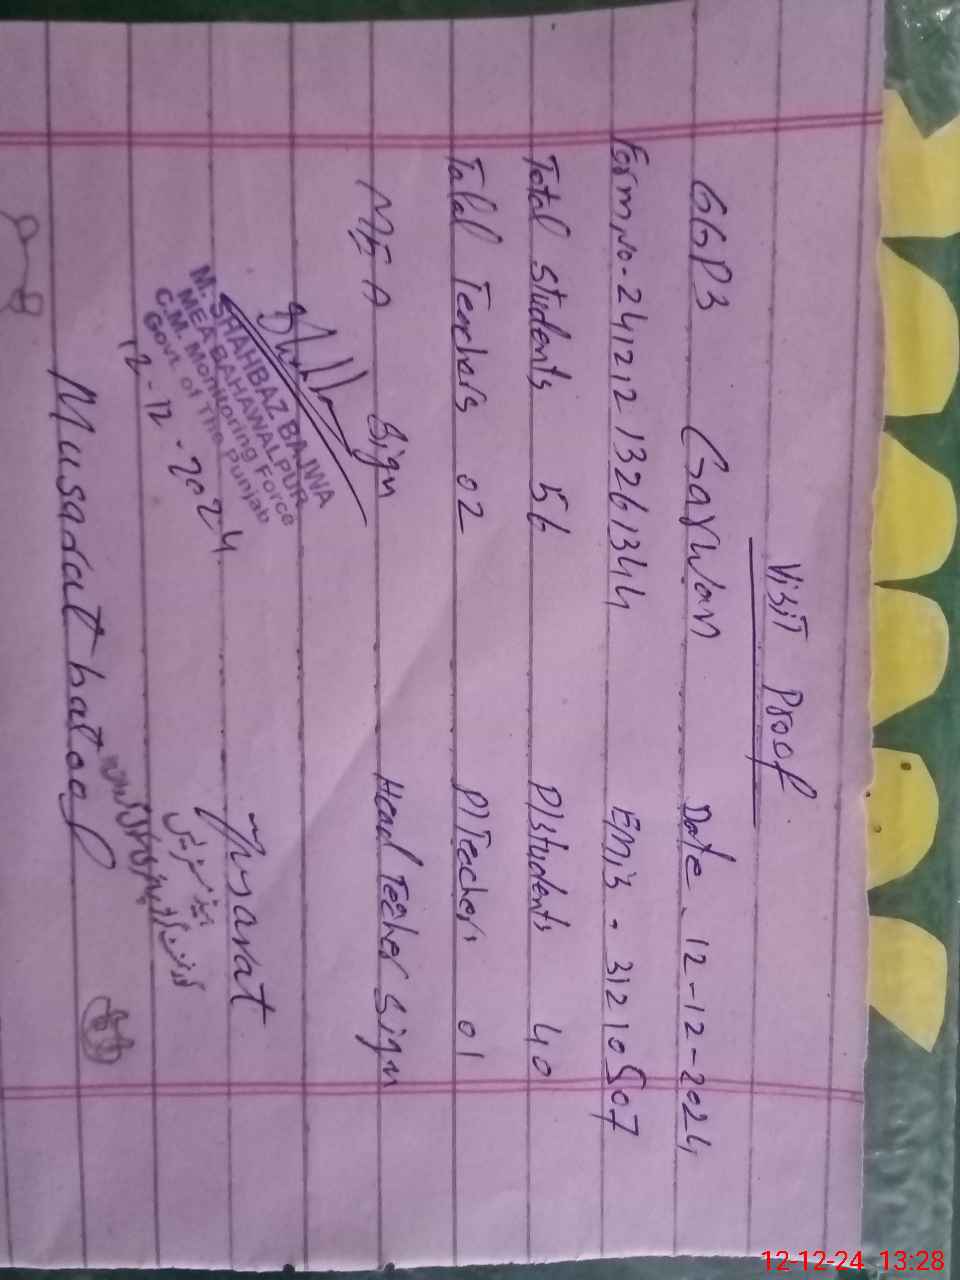 Visit Proof
GGPS Garwan Date - 12-12-2024
Form,No-24121213261344 Emis - 31210507
Total Students 56 P/Students 40
Total Teachers 02 P/Teachers 01
MEA Sign Head Teacher Sign
M. SHAHBAZ BAJWA
MEA BAHAWALPUR
C.M. Monitoring Force
Govt. of The Punjab
12-12-2024
Musarat
Musarat batool
12-12-24 13:28